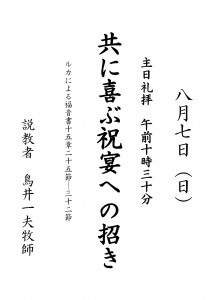 八月七日（日）
主日礼拝　午前十時三十分
共に喜ぶ祝宴への招き
ルカによる福音書十五章二十五節―三十二節
説教者　鳥井一夫牧師